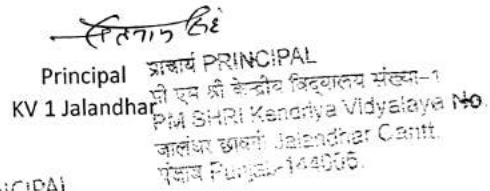 Principal
KV 1 Jalandhar
प्राचार्य PRINCIPAL
पी एम श्री केन्द्रीय विद्यालय संख्या-1
PM SHRI Kendriya Vidyalaya No.
जालंधर छावनी Jalandhar Cantt.
पंजाब Punjab-144005.
NCIPAL